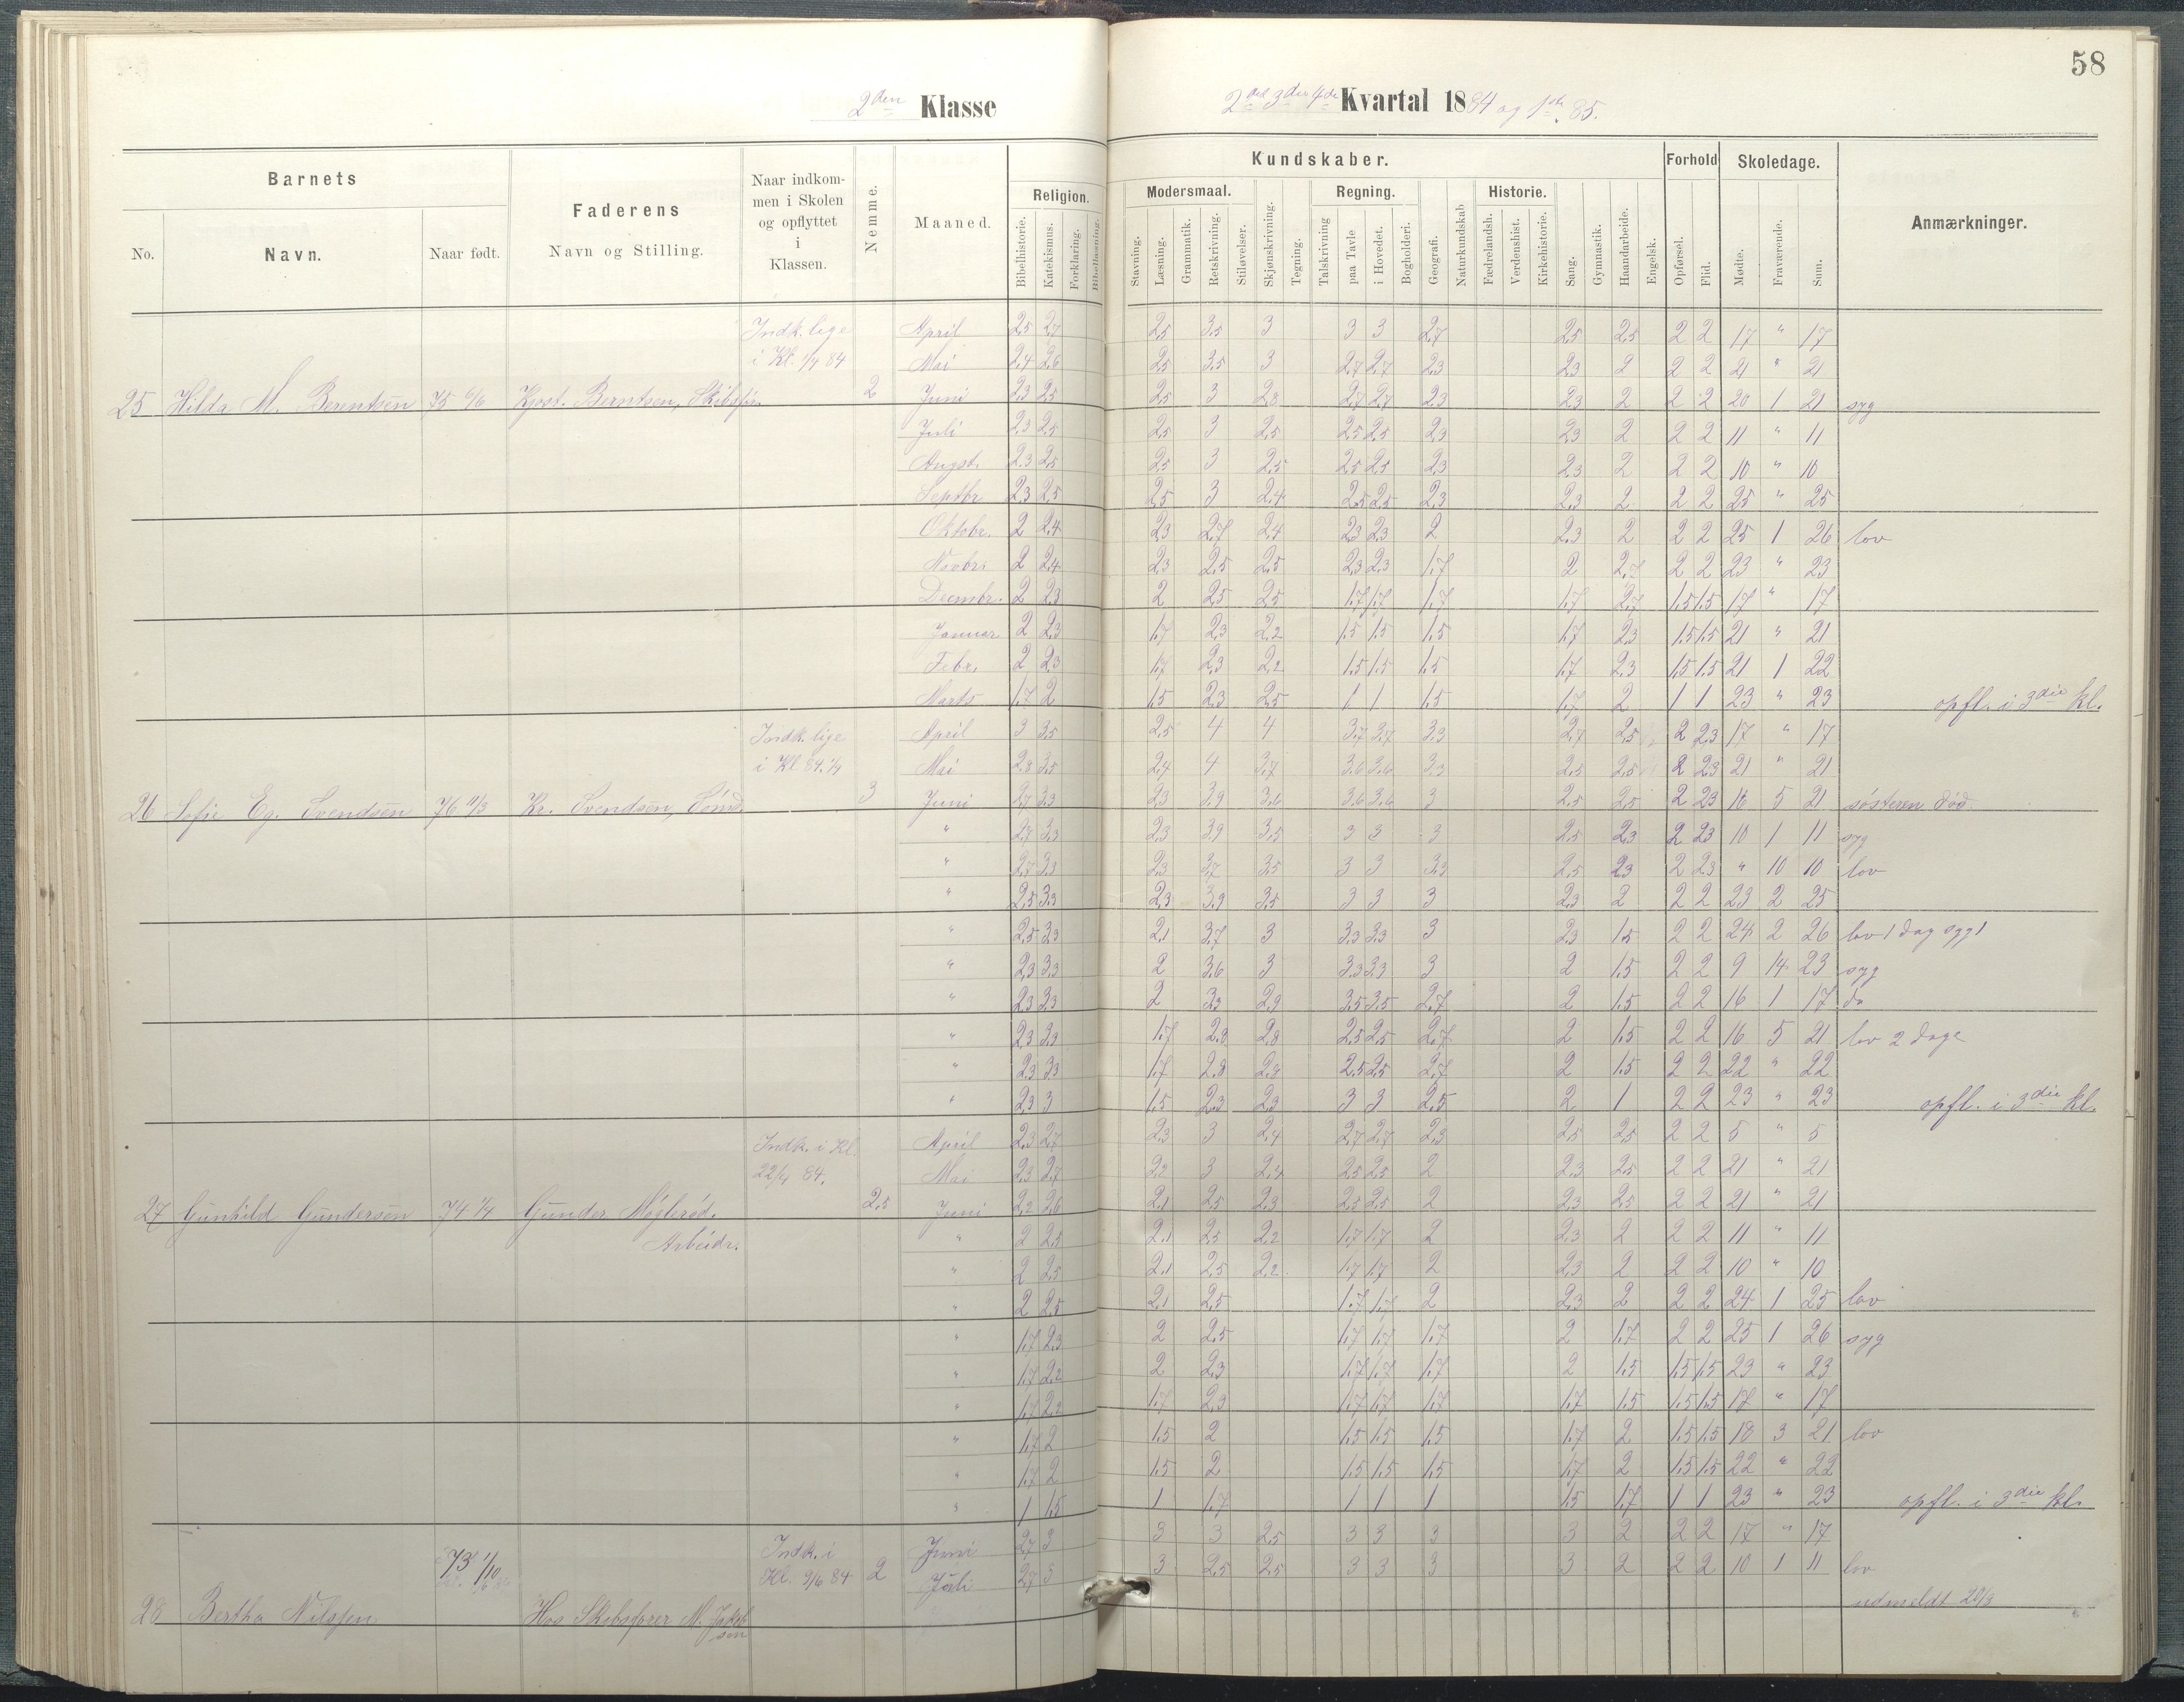 58
2den Klasse
2det 3die 4de Kvartal 1884 og 1ste 85.
Barnets
No.
Navn.
Naar født.
Faderens
Navn og Stilling.
Naar indkom-
men i Skolen
og opflyttet
i
Klassen.
Nemme.
Maaned.
Kundskaber.
Religion.
Bibelhistorie.
Katekismus.
Forklaring.
Bibellæsning.
Modersmaal.
Stavning.
Læsning.
Grammatik.
Retskrivning.
Stiløvelser.
Skjønskrivning.
Tegning.
Regning.
Talskrivning
paa Tavle
i Hovedet.
Bogholderi.
Geografi.
Naturkundskab
Historie.
Fædrelandsh.
Verdenshist.
Kirkehistorie.
Sang.
Gymnastik.
Haandarbeide.
Engelsk.
Forhold
Opførsel.
Flid.
Skoledage.
Mødte.
Fraværende.
Sum.
Anmærkninger.
Indk. lige
i Kl. 1/4 84
25 Hilda M. Berentsen 75 6/6 Kjøst. Berntsen, Skibsfør. 2
April 2,5 2,7 2,5 3,5 3 3 3 2,7 2,5 2,5 2 2 17 " 17
Mai 2,4 2,6 2,5 3,5 3 2,7 2,7 2,3 2,3 2 2 2 21 " 21
Juni 2,3 2,5 2,5 3 2,8 2,7 2,7 2,3 2,3 2 2 2 20 1 21 syg
Juli 2,3 2,5 2,5 3 2,5 2,5 2,5 2,3 2,3 2 2 2 11 " 11
Augst. 2,3 2,5 2,5 3 2,5 2,5 2,5 2,3 2,3 2 2 2 10 " 10
Septbr 2,3 2,5 2,5 3 2,4 2,5 2,5 2,3 2,3 2 2 2 25 " 25
Oktobr. 2 2,4 2,3 2,7 2,4 2,3 2,3 2 2,3 2 2 2 25 1 26 lov
Novbr. 2 2,4 2,3 2,5 2,5 2,3 2,3 1,7 2 2,7 2 2 23 " 23
Decmbr. 2 2,3 2 2,5 2,5 1,7 1,7 1,7 1,7 2,7 1,5 1,5 17 " 17
Januar 2 2,3 1,7 2,3 2,2 1,5 1,5 1,5 1,7 2,3 1,5 1,5 21 " 21
Febr. 2 2,3 1,7 2,3 2,2 1,5 1,5 1,5 1,7 2,3 1,5 1,5 21 1 22
Marts 1,7 2 1,5 2,3 2,5 1 1 1,5 1,7 2 1 1 23 " 23 opfl. i 3die kl.
Indk. lige
i Kl 84 1/4
26 Sofie Eg. Svendsen 76 11/3 Kr. Svendsen, Sømd. 3
April 3 3,5 2,5 4 4 3,7 3,7 3,3 2,7 2,5 2 2,3 17 " 17
Mai 2,8 3,5 2,4 4 3,7 3,6 3,6 3,3 2,5 2,5 2 2,3 21 " 21
Juni 2,7 3,3 2,3 3,9 3,6 3,6 3,6 3 2,5 2,5 2 2,3 16 5 21 søsteren død
" 2,7 3,3 2,3 3,9 3,5 3 3 3 2,5 2,3 2 2,3 10 1 11 syg
" 2,7 3,3 2,3 3,7 3,5 3 3 3,3 2,5 2,3 2 2,3 " 10 10 lov
" 2,5 3,3 2,3 3,9 3,5 3 3 3 2,3 2 2 2 23 2 25
" 2,5 3,3 2,1 3,7 3 3,3 3,3 3 2,3 1,5 2 2 24 2 26 lov 1 dag syg 1
" 2,3 3,3 2 3,6 3 3,3 3,3 3 2 1,5 2 2 9 14 23 syg
" 2,3 3,3 2 3,3 2,9 3,5 3,5 2,7 2 1,5 2 2 16 1 17 do
" 2,3 3,3 1,7 2,8 2,8 2,5 2,5 2,7 2 1,5 2 2 16 5 21 lov 2 dage
" 2,3 3,3 1,7 2,8 2,8 2,5 2,5 2,7 2 1,5 2 2 22 " 22
" 2,3 3 1,5 2,3 2,3 3 3 2,5 2 1 2 2 23 " 23 opfl. i 3die kl.
Indk. i Kl.
22/4 84.
27 Gunhild Gundersen 74 1/4 Gunder Møglerød. 2,5
Arbeidr.
April 2,3 2,7 2,3 3 2,4 2,7 2,7 2,3 2,5 2,5 2 2 5 " 5
Mai 2,3 2,7 2,2 3 2,4 2,5 2,5 2 2,3 2,5 2 2 21 " 21
Juni 2,2 2,6 2,1 2,5 2,3 2,5 2,5 2 2,3 2,5 2 2 21 " 21
" 2 2,5 2,1 2,5 2,2 1,7 1,7 2 2,3 2 2 2 11 " 11
" 2 2,5 2,1 2,5 2,2 1,7 1,7 2 2,3 2 2 2 10 " 10
" 2 2,5 2,1 2,5 1,7 1,7 2 2,3 2 2 2 24 1 25 lov
" 1,7 2,3 2 2,5 1,7 1,7 1,7 2 1,7 2 2 25 1 26 syg
" 1,7 2,2 2 2,3 1,7 1,7 1,7 2 1,5 1,5 1,5 23 " 23
" 1,7 2,2 1,7 2,3 1,7 1,7 1,7 1,7 1,5 1,5 1,5 17 " 17
" 1,7 2 1,5 2 1,5 1,5 1,5 1,7 2 1,5 1,5 18 3 21 lov
" 1,7 2 1,5 2 1,5 1,5 1,5 1,7 2 1,5 1,5 22 " 22
" 1 1,5 1 1,7 1 1 1 1,5 1,7 1 1 23 " 23 opfl. i 3die kl.
Indk. i
Kl. 9/6 84
28 Bertha Nilssen 73 1/10 Hos Skibsfører M. Jakob
sen 2
Juni 2,7 3 3 3 2,5 3 3 3 3 2 2 2 17 " 17
Juli 2,7 3 3 2,5 2,5 3 3 3 3 2 2 2 10 1 11 lov
udmeldt 20/8